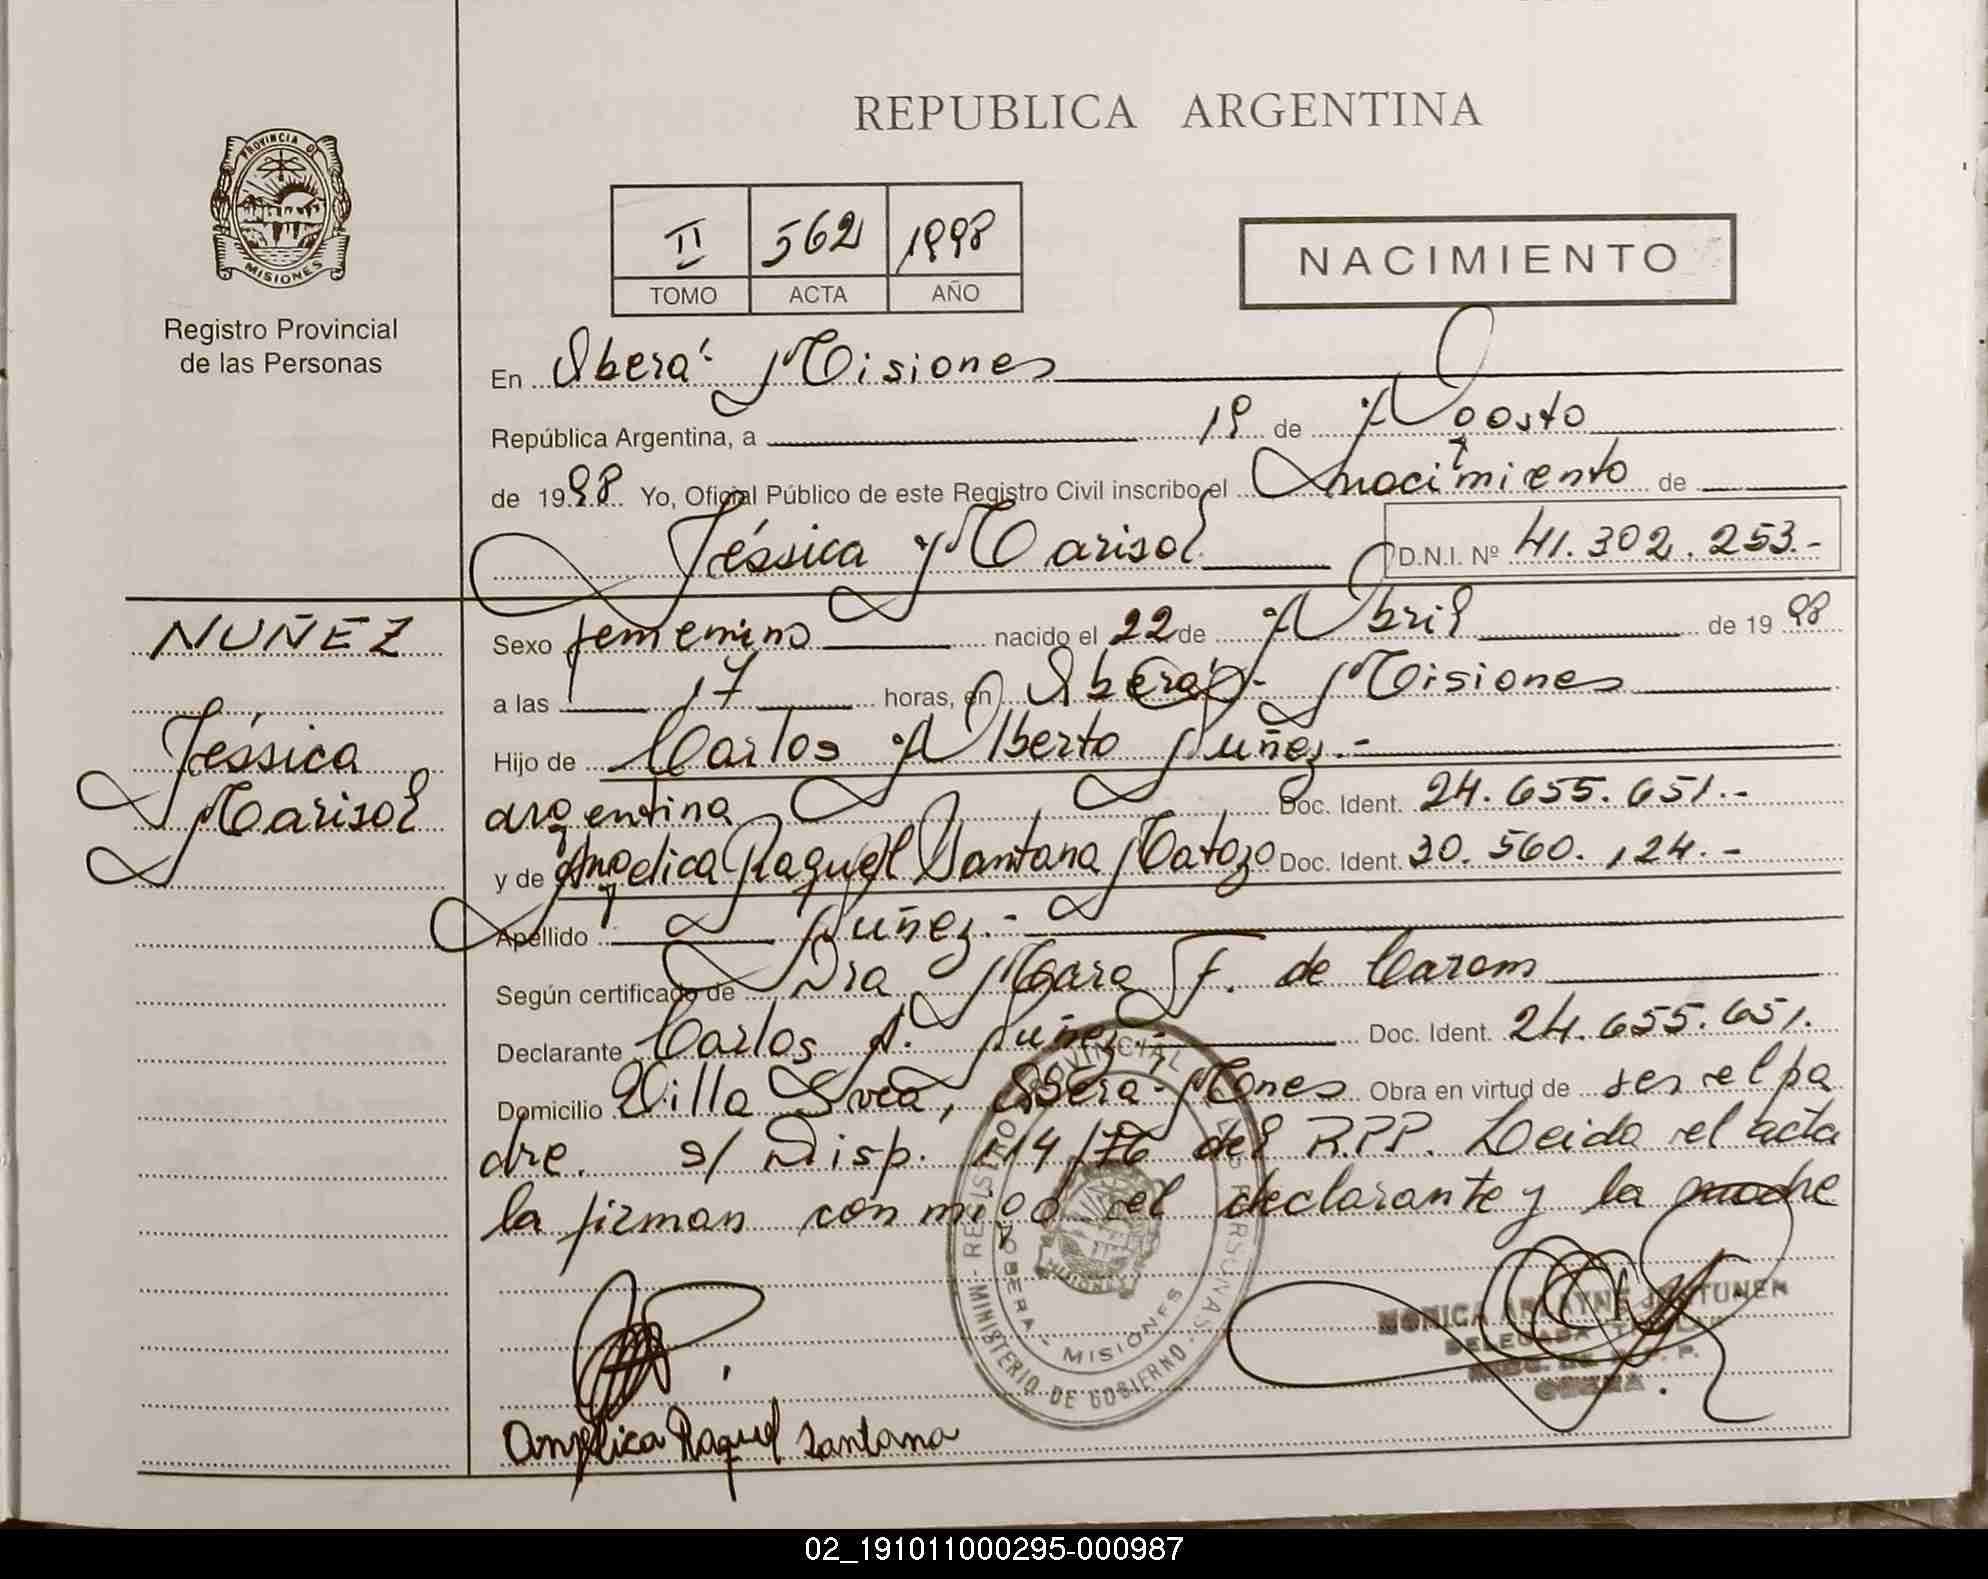 REPUBLICA ARGENTINA
PROVINCIA DE
MISIONES
Registro Provincial
de las Personas
II 562 1998
TOMO ACTA AÑO
NACIMIENTO
En Oberá - Misiones
República Argentina, a 19 de Agosto
de 1998 Yo, Oficial Público de este Registro Civil inscribo el nacimiento de
Jéssica Marisol D.N.I. Nº 41.302.253.-
NUÑEZ
Jéssica
Marisol
Sexo femenino nacido el 22 de Abril de 1998
a las 17 horas, en Oberá - Misiones
Hijo de Carlos Alberto Núñez.-
argentina Doc. Ident. 24.655.651.-
y de Angelica Raquel Santana Matozo Doc. Ident. 30.560.124.-
Apellido Núñez.-
Según certificado de Dra Mara F. de
Declarante Carlos A. Núñez.- Doc. Ident. 24.655.651.
Domicilio Villa Svea, Oberá - Mones Obra en virtud de ser el pa
dre. s/ Disp. 114/76 del R.P.P. Leida el acta
la firman conmigo el declarante y la madre
REGISTRO PROVINCIAL DE LAS PERSONAS
MINISTERIO DE GOBIERNO
OBERA - MISIONES
MISIONES
MONICA
DELEGADA TITULAR
OBERA
Angelica Raquel Santana
02_191011000295-000987